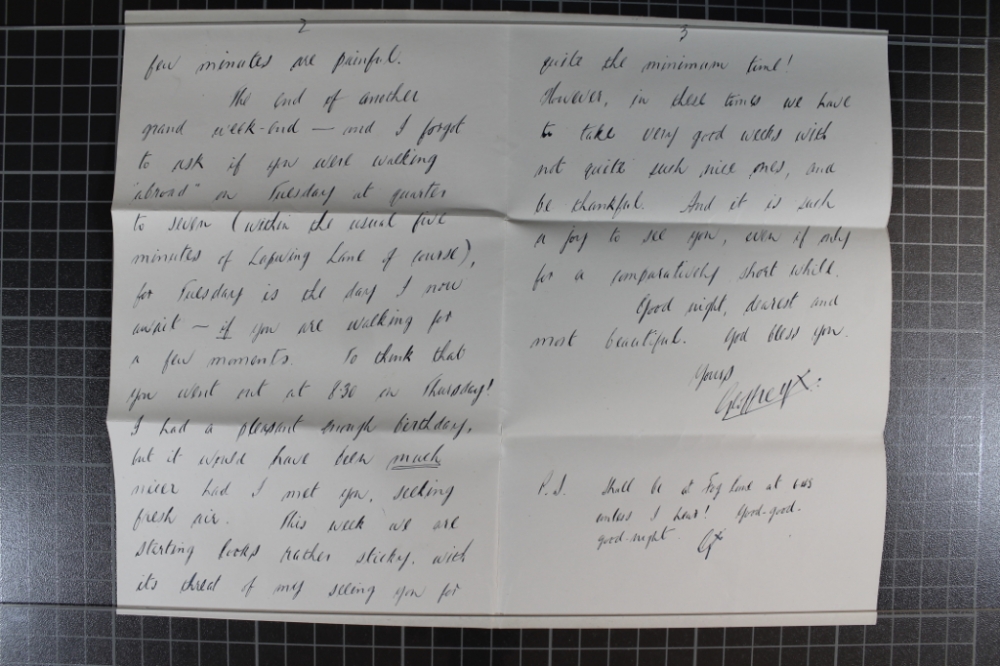 2
few minutes are painful.
The end of another
grand week-end — and I forgot
to ask if you were walking
"abroad" on Tuesday at quarter
to seven (within the usual five
minutes of Lapwing Lane of course),
for Tuesday is the day I now
await — if you are walking for
a few moments. To think that
you went out at 8.30 on Thursday!
I had a pleasant enough birthday,
but it would have been much
nicer had I met you, seeking
fresh air. This week we are
starting looks rather sticky, with
its threat of my seeing you for
3
quite the minimum time!
However, in these times we have
to take very good weeks with
not quite such nice ones, and
be thankful. And it is such
a joy to see you, even if only
for a comparatively short while.
Good night, dearest and
most beautiful. God bless you.
Yours
Geoffrey X
P.S. Shall be at Fog Lane at
unless I hear! Good-good-
good-night. GX